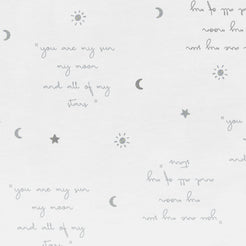 and all of my
my moon
you are my sun
"you are my sun
my moon
and all of my
stars"
"you
m
and
stars"
and all of my
my moon
you are my sun
"you are my sun
my moon
and all of my
stars"